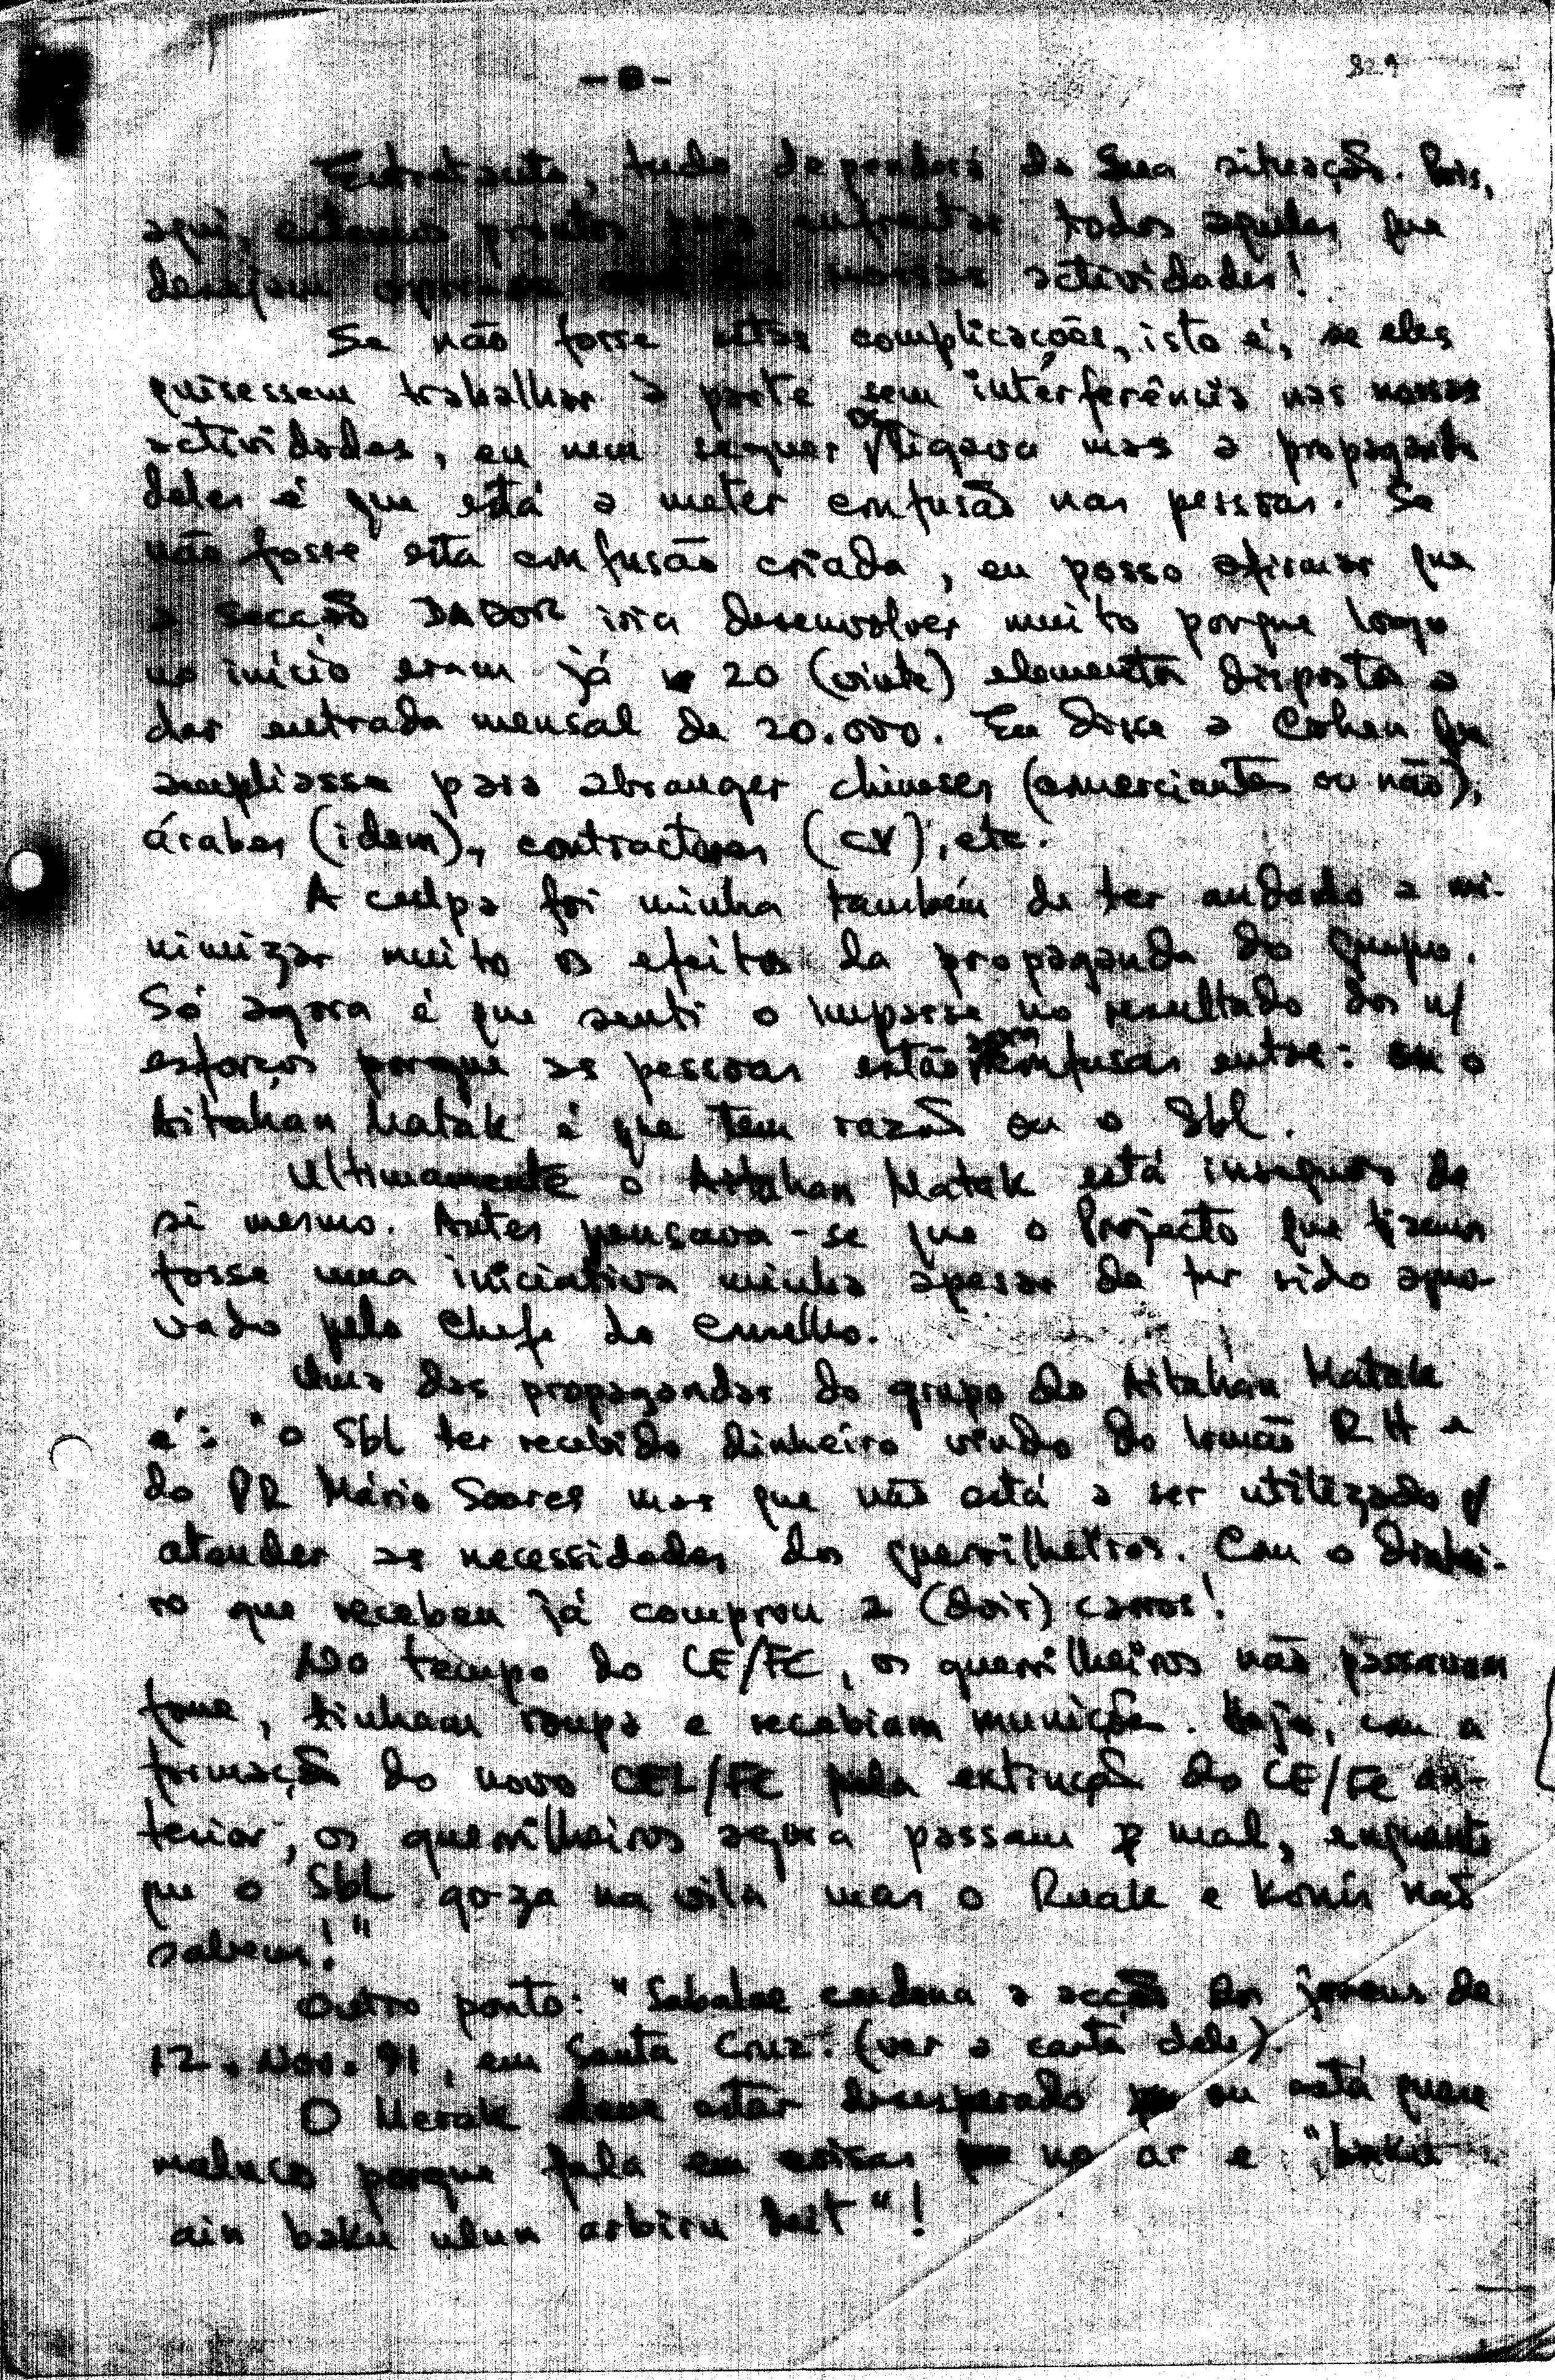 - 8 -
Entretanto, tudo dependerá da Sua situação. Pois,
aqui, estamos prontos para enfrentar todos aqueles que
desejam nossas actividades!
Se não fosse estas complicações, isto é, se eles
quisessem trabalhar à parte sem interferência nas nossas
actividades, eu nem sequer os ligava mas a propaganda
deles é que está a meter confusão nas pessoas. Se
não fosse esta confusão criada, eu posso afirmar que
a Secção DADOR iria desenvolver muito porque logo
no início eram já 20 (vinte) elementos dispostos a
dar entrada mensal de 20.000. Eu disse a Cohen que
ampliasse para abranger chineses (comerciantes ou não),
árabes (idem), contractores (CV), etc.
A culpa foi minha também de ter andado a mi-
nimizar muito os efeitos da propaganda do grupo.
Só agora é que senti o impasse no resultado dos n/
esforços porque as pessoas estão agora confusas entre: ou o
Aitahan Matak é que tem razão ou o Sbl.
Ultimamente o Aitahan Matak está inseguro de
si mesmo. Antes pensava-se que o Projecto que fizemos
fosse uma iniciativa minha apesar de ter sido apro-
vado pelo Chefe do Conselho.
Uma das propagandas do grupo do Aitahan Matak
é: "o Sbl ter recebido dinheiro vindo do Irmão RH e
do PR Mário Soares mas que não está a ser utilizado p/
atender as necessidades dos guerrilheiros. Com o dinhei-
ro que recebeu já comprou 2 (dois) carros!
No tempo do CE/FC, os guerrilheiros não passavam
fome, tinham roupa e recebiam munições. Hoje, com a
formação do novo CEL/FC pela extinção do CE/FC an-
terior, os guerrilheiros agora passam mal, enquanto
que o SbL goza na vila mas o Ruak e Konis não
sabem!"
Outro ponto: "Sabalae condena a acção dos jovens de
12.Nov.91, em Santa Cruz. (ver a carta dele).
O Merak deve estar desesperado ou está quase
maluco porque fala em coisas no ar e "baku
ain baku ulun arbiru deit"!